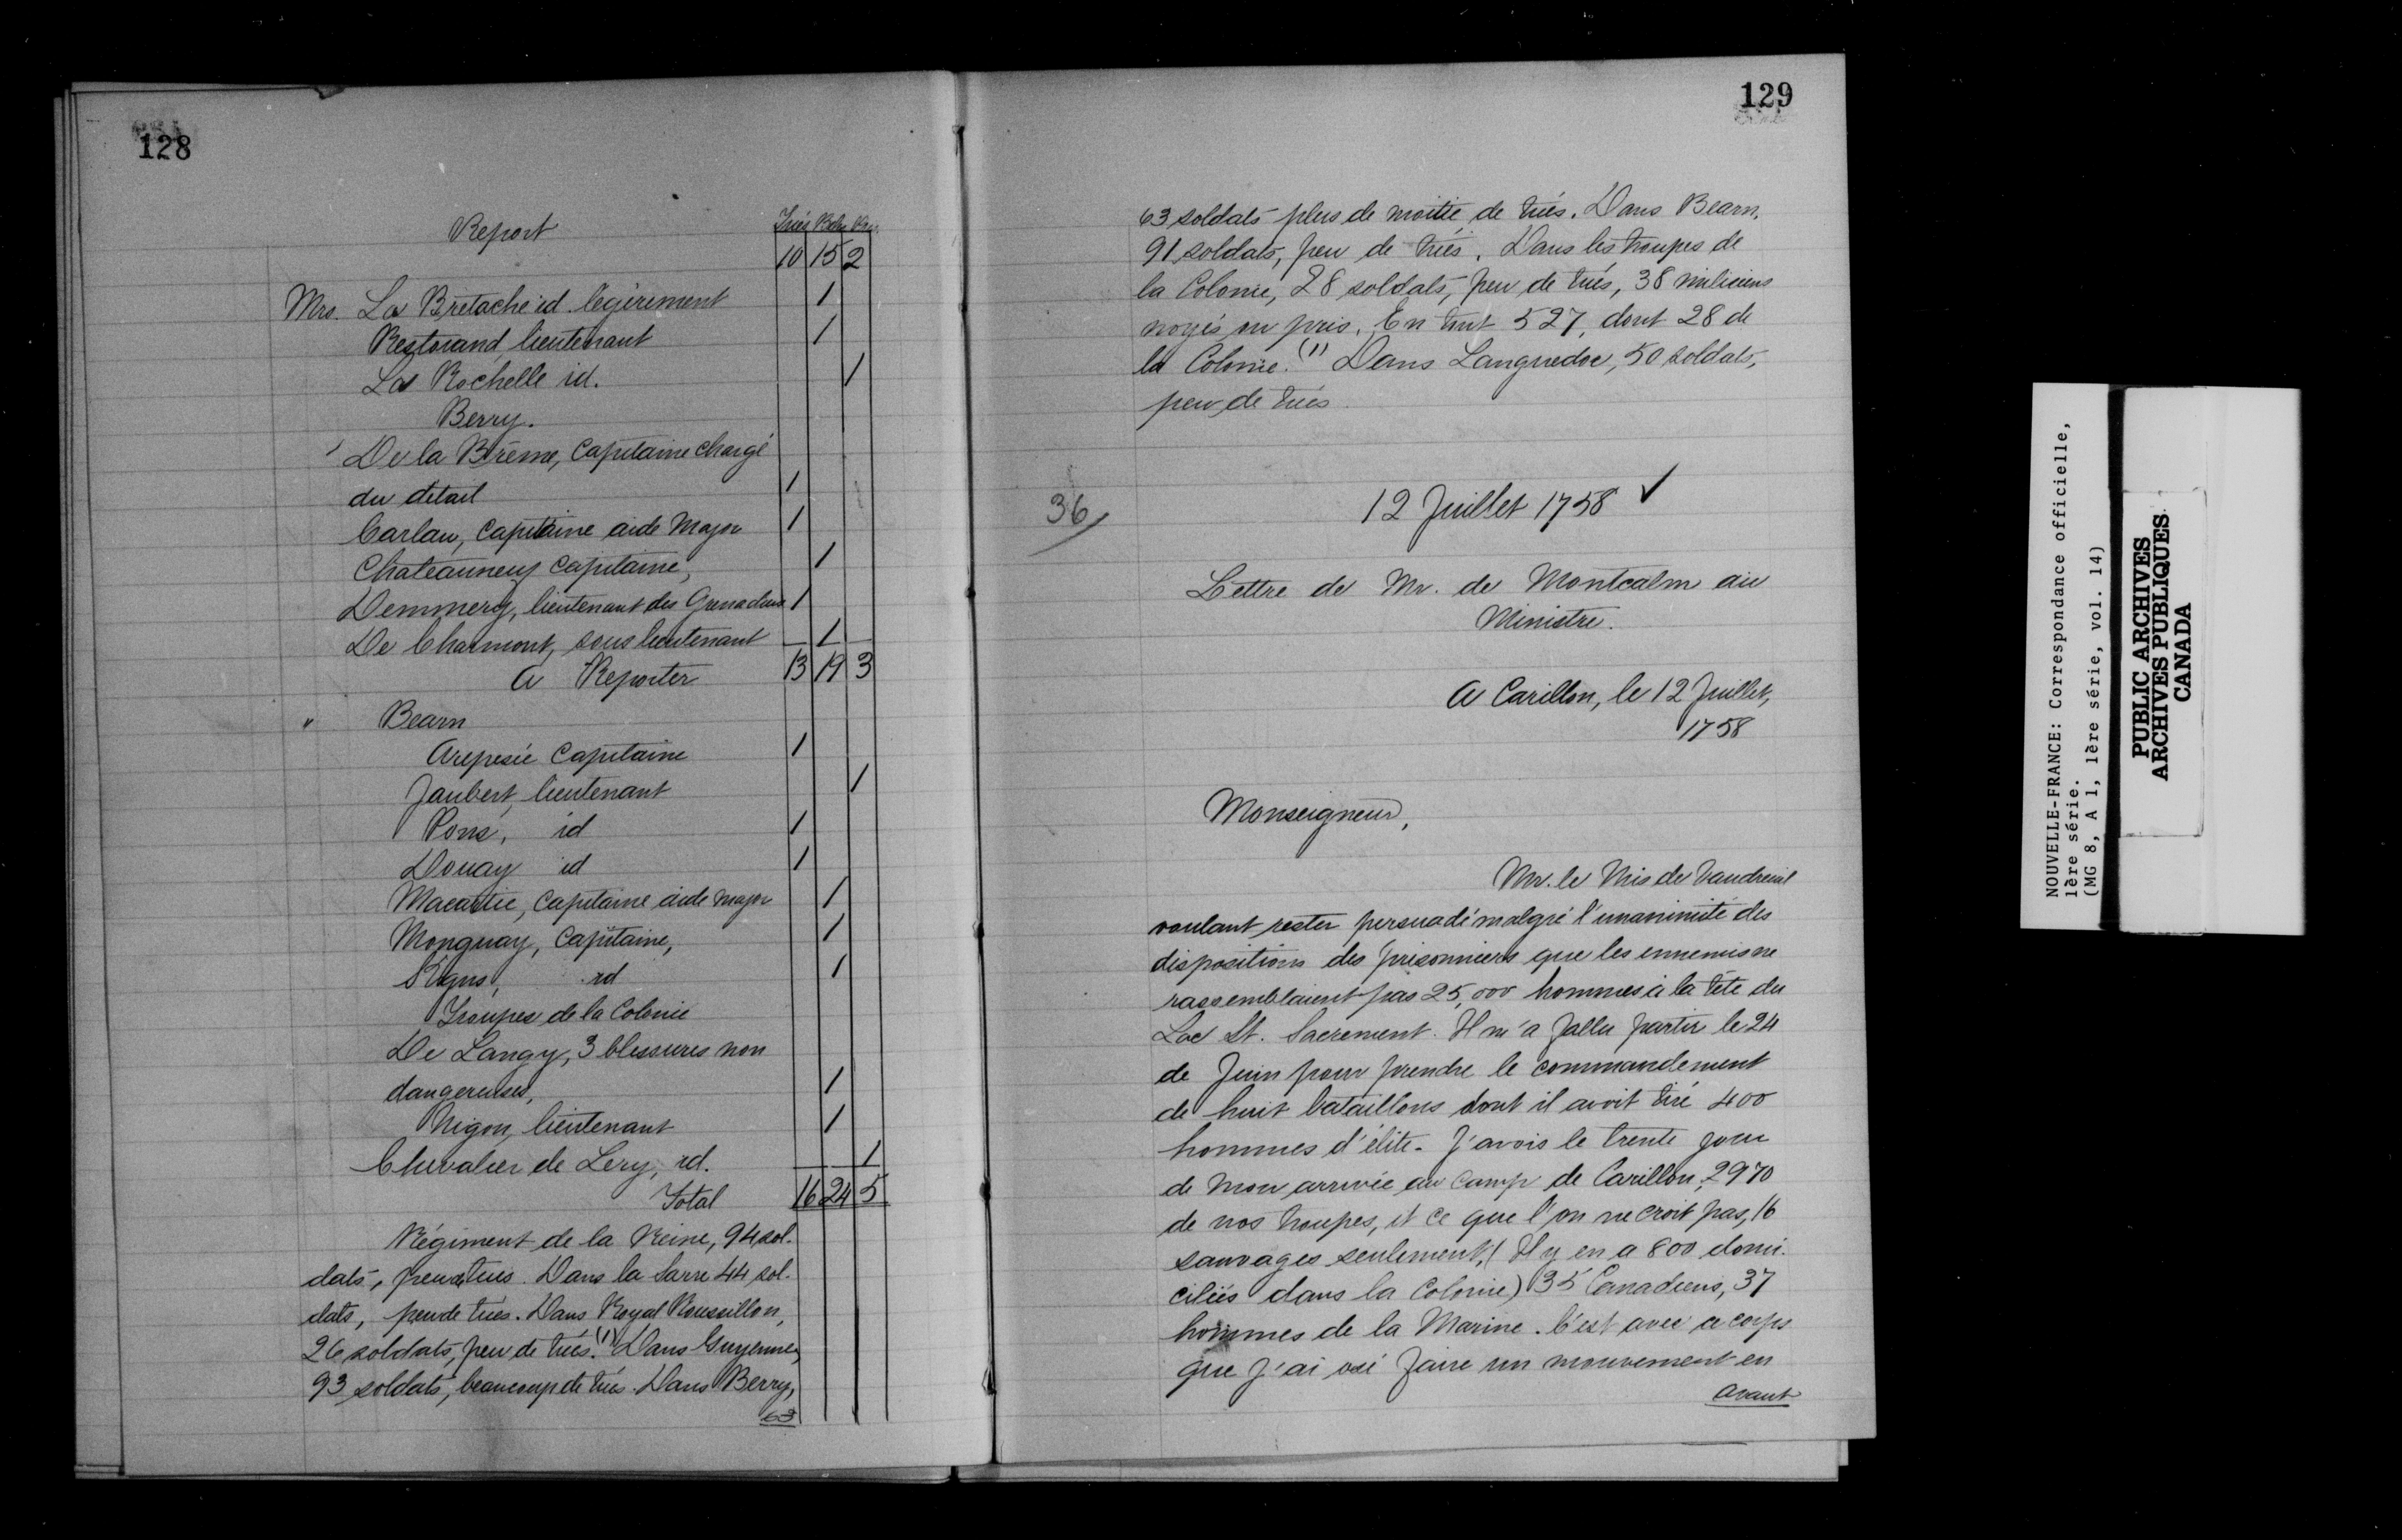 128
Report
Tués
10 15 2
Mrs. La Bretache id. légèrement 1
Restorand, lieutenant 1
La Rochelle id. 1
Berry.
De la Brême, Capitaine chargé
du détail 1
Carlan, Capitaine aide Major 1
Chateauneuf Capitaine, 1
Demmery, lieutenant des Grenadiers 1
De Charmont, sous lieutenant 1
A Reporter 13 19 3
" Bearn
Capitaine 1
Jaubert, lieutenant 1
Pons, id 1
Douay id 1
Macartie, Capitaine aide major 1
Monguay, Capitaine, 1
id 1
Troupes de la Colonie
De Langy, 3 blessures non
dangereuses, 1
Nigon, lieutenant 1
Chevalier de Lery, id. 1
Total 16 24 5
Régiment de la Reine, 94 sol-
dats, peu de tués. Dans la Sarre 44 sol-
dats, peu de tués. Dans Royal Roussillon,
26 soldats, peu de tués. (1) Dans Guyenne,
93 soldats, beaucoup de tués. Dans Berry,
63
129
63 soldats plus de moitié de tués. Dans Bearn,
91 soldats, peu de tués. Dans les troupes de
la Colonie, 28 soldats, peu de tués, 38 miliciens
noyés ou pris. En tout 527, dont 28 de
la Colonie. (1) Dans Languedoc, 50 soldats,
peu de tués.
36/
12 Juillet 1758 ✓
Lettre de Mr. de Montcalm au
Ministre.
A Carillon, le 12 Juillet,
1758
Monseigneur,
Mr. le Mis de Vaudreuil
voulant rester persuadé malgré l'unanimité des
dispositions des prisonniers que les ennemis ne
rassemblaient pas 25,000 hommes à la tête du
Lac St. Sacrement. Il m'a fallu partir le 24
de Juin pour prendre le commandement
de huit bataillons dont il avoit tiré 400
hommes d'élite. J'avois le trente jour
de mon arrivée au camp de Carillon, 2970
de nos troupes, et ce que l'on ne croit pas, 16
sauvages seulement, (Il y en a 800 domi-
ciliés dans la Colonie) 35 Canadiens, 37
hommes de la Marine. C'est avec ce corps
que J'ai osé faire un mouvement en
avant
NOUVELLE-FRANCE: Correspondance officielle,
1ère série.
(MG 8, A 1, 1ère série, vol. 14)
PUBLIC ARCHIVES
ARCHIVES PUBLIQUES
CANADA